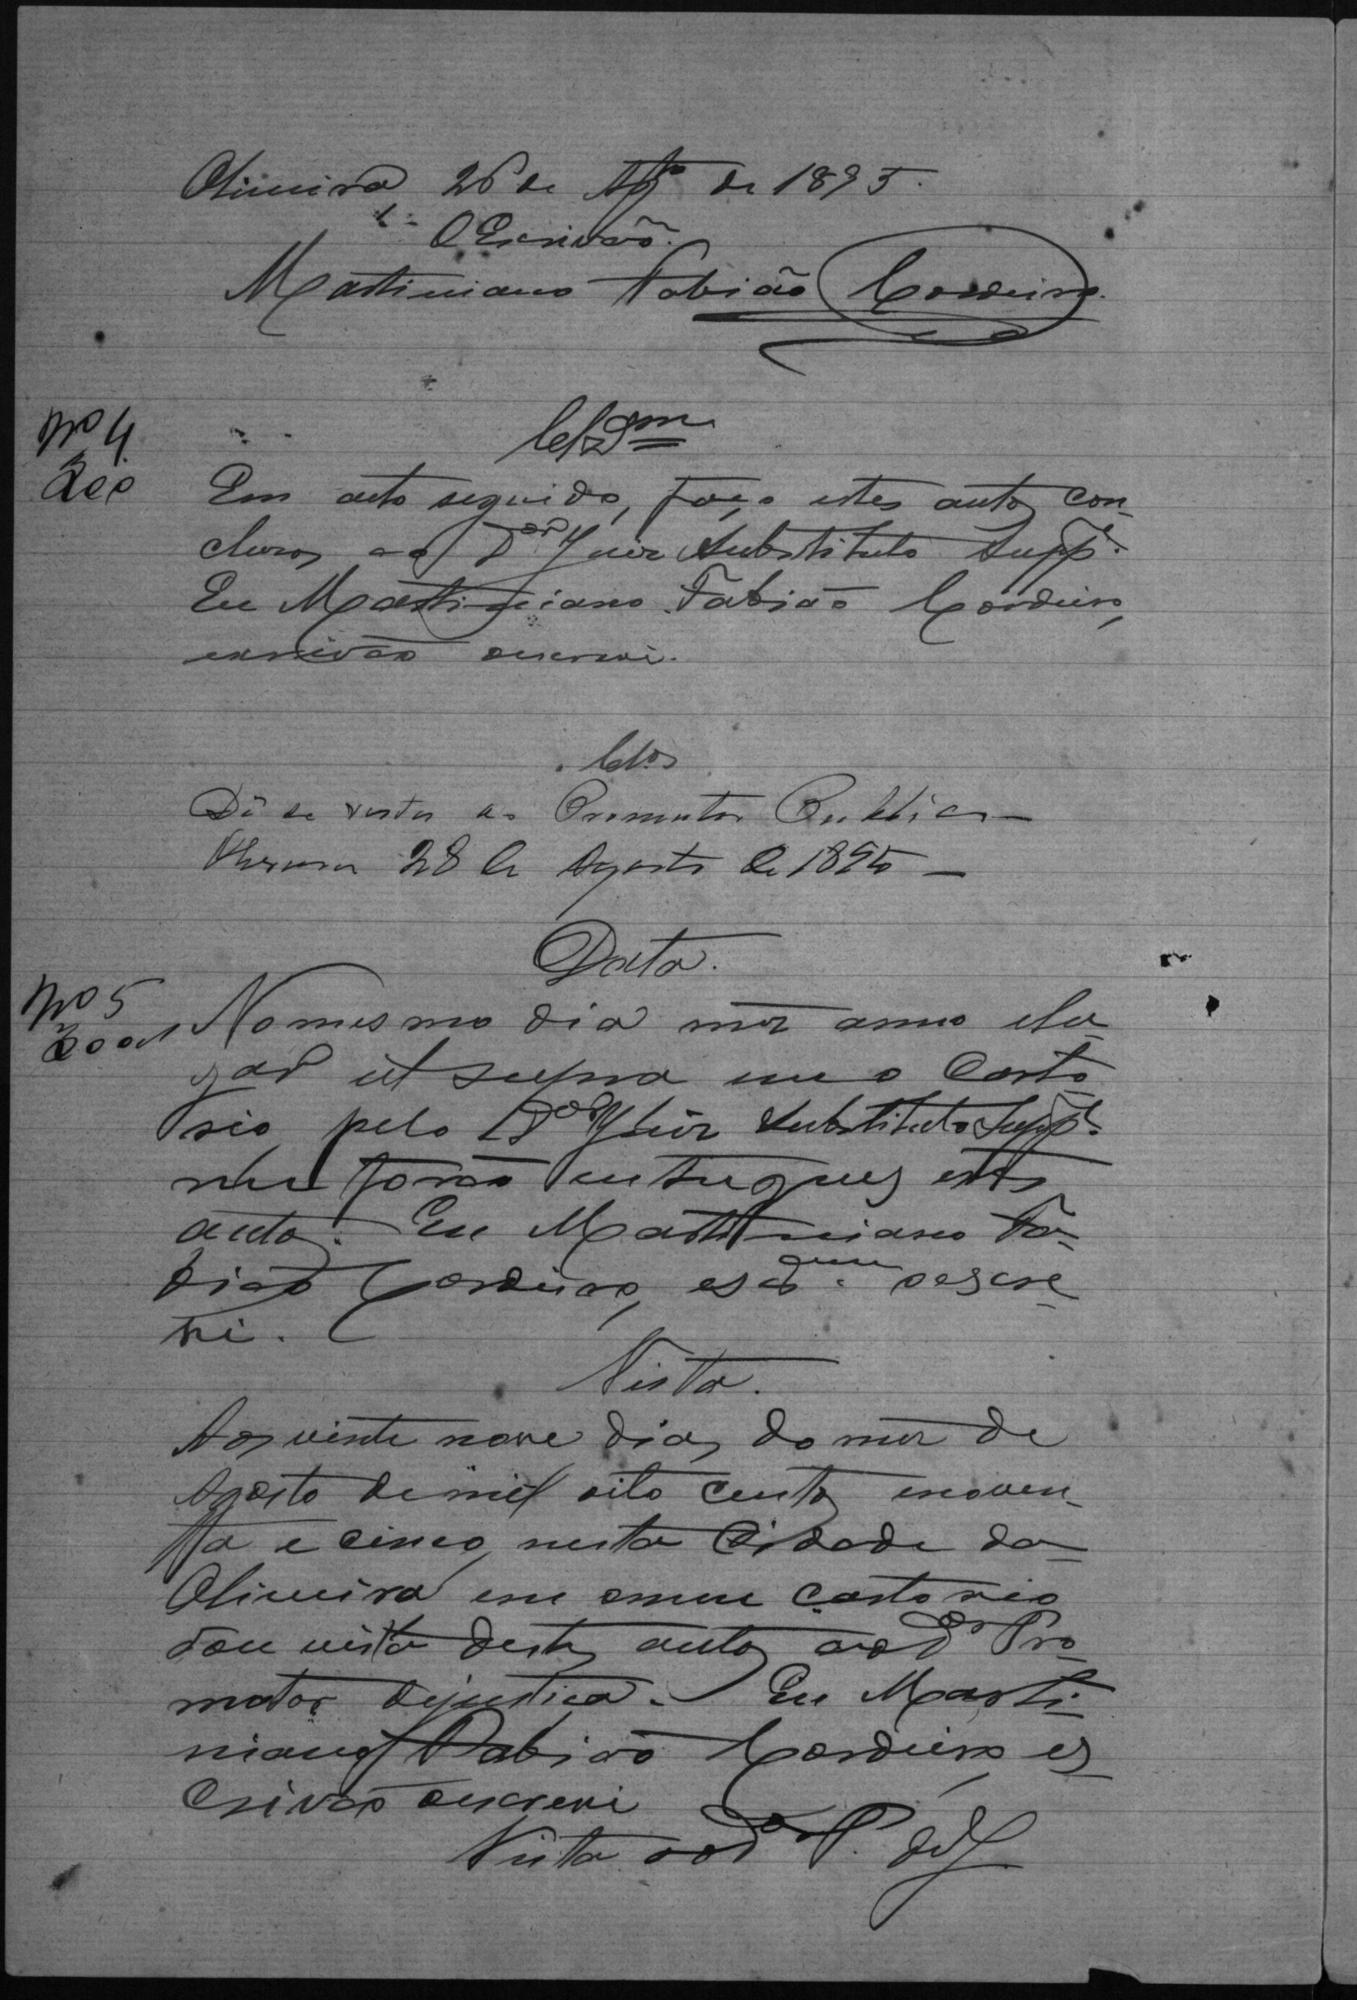 Oliveira 26 de Agto de 1895.
O Escrivão.
Martiniano Fabião Cordeiro.
Nº 4
200
Clzm
Em acto seguido, faço estes autos con-
clusos ao Dor Juiz Substituto Suppe.
Eu Martiniano Fabião Cordeiro,
escrivão oescrevi.
Clos
Dê se vista ao Promotor Publico —
Oliveira 28 de Agosto de 1895 —
Data.
Nº 5
200
No mesmo dia mez anno elu-
gar ut supra em o Carto-
rio pelo Dor Juiz Substituto Suppe.
me forão entregues estes
autos. Eu Martiniano Fa-
bião Cordeiro, escrm. oescre-
vi.
Vista.
Aos vinte nove dias do mez de
Agosto demil oito centos enoven-
ta e cinco, nesta Cidade da
Oliveira em omeu cartorio
dou vista destes autos aod.or Pro-
motor dejustiça. Eu Marti-
niano Fabião Cordeiro, es-
crivão oescrevi
Vista aod.or P. deJ.